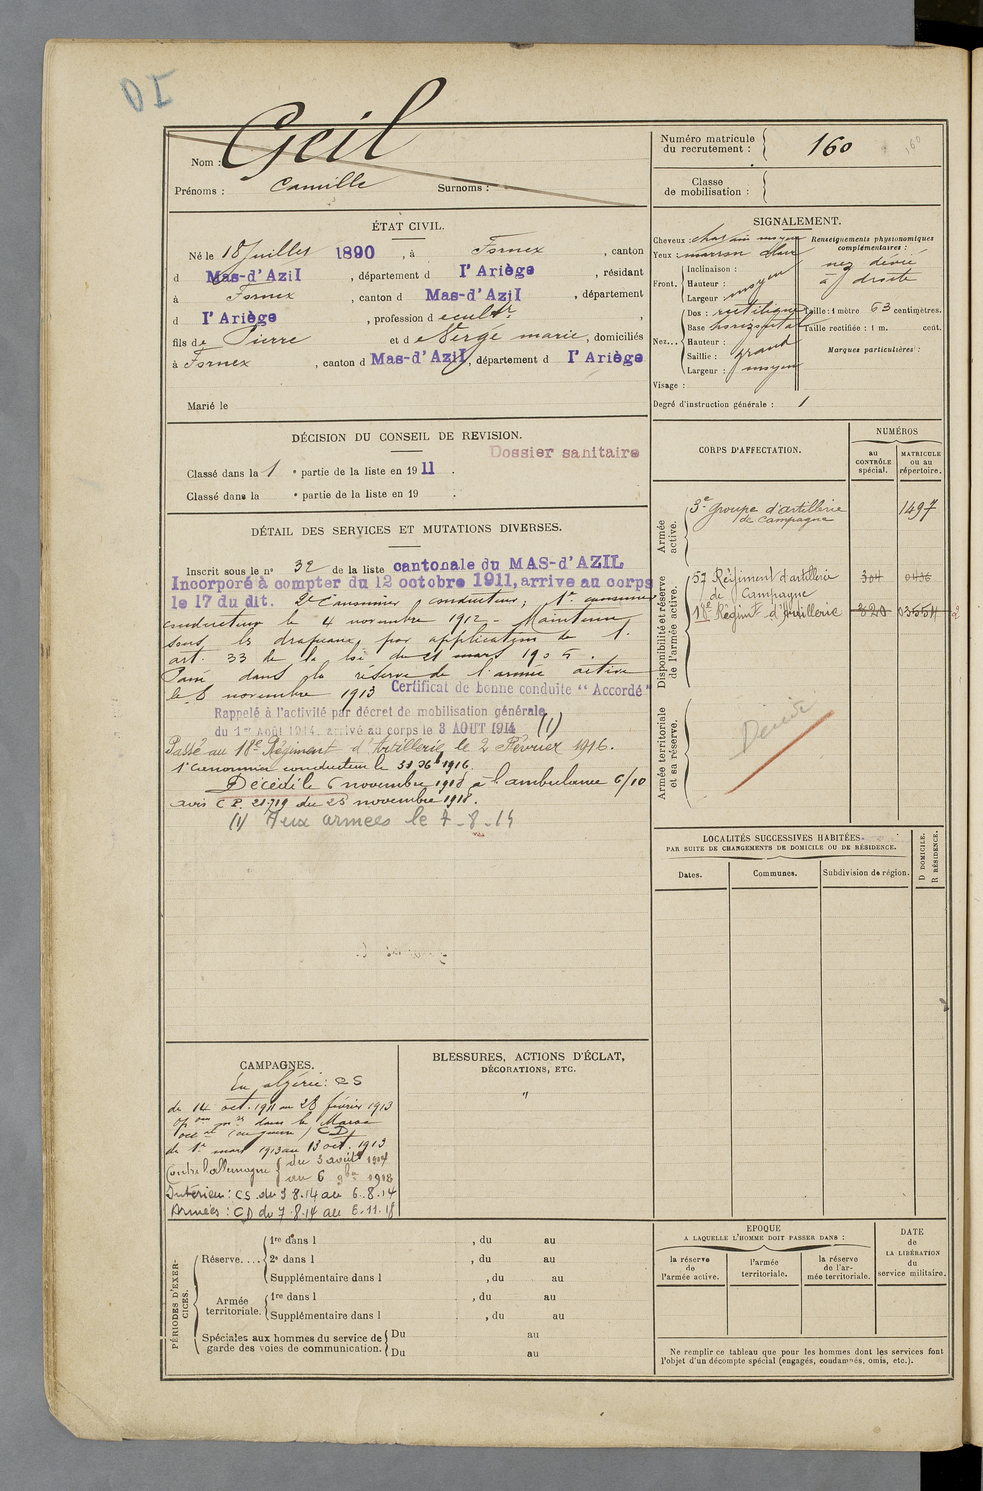 DI
Nom : Geil
Prénoms : Camille Surnoms :
Numéro matricule du recrutement : 160
160
Classe de mobilisation :
ÉTAT CIVIL.
Né le 18 Juillet 1890, à Fornex, canton
d Mas-d'Azil, département d l'Ariège, résidant
à Fornex, canton d Mas-d'Azil, département
d l'Ariège, profession de cultr,
fils de Pierre et de Vergé marie, domiciliés
à Fornex, canton d Mas-d'Azil, département d l'Ariège
Marié le
SIGNALEMENT.
Cheveux : chatain moyen
Yeux : marron clair
Front. Inclinaison :
Hauteur : moyen
Largeur :
Nez... Dos : rectiligne
Base horizontal
Hauteur :
Saillie : grand
Largeur : moyen
Visage :
Renseignements physionomiques complémentaires :
nez dévié
à droite
Taille : 1 mètre 63 centimètres.
Taille rectifiée : 1 m. cent.
Marques particulières :
Degré d'instruction générale : 1
DÉCISION DU CONSEIL DE REVISION.
Dossier sanitaire
Classé dans la 1 e partie de la liste en 1911.
Classé dans la e partie de la liste en 19 .
DÉTAIL DES SERVICES ET MUTATIONS DIVERSES.
Inscrit sous le n° 32 de la liste cantonale du MAS-d'AZIL
Incorporé à compter du 12 octobre 1911, arrive au corps
le 17 du dit. 2e Canonnier conducteur, 1er canonnier
conducteur le 4 novembre 1912 - Maintenu
sous les drapeaux, par application de l'
art. 33 de la loi du 21 mars 1905.
Passé dans la réserve de l'armée active
le 8 novembre 1913 Certificat de bonne conduite "Accordé"
Rappelé à l'activité par décret de mobilisation générale
du 1er Août 1914, arrivé au corps le 3 AOUT 1914 (1)
Passé au 18e Régiment d'Artillerie le 2 Février 1916.
1er Canonnier conducteur le 31 Xbre 1916.
Décédé le 6 novembre 1918 à l'ambulance 6/10
avis C.P. 21719 du 23 novembre 1918.
(1) Aux armées le 7-8-14
CORPS D'AFFECTATION.
NUMÉROS
au CONTRÔLE spécial.
MATRICULE ou au répertoire.
Armée active.
3e groupe d'artillerie de campagne 1497
Disponibilité et réserve de l'armée active.
57 Régiment d'artillerie de Campagne 304 0436
18e Régimt d'Artillerie 820 03554
Armée territoriale et sa réserve.
Décédé
LOCALITÉS SUCCESSIVES HABITÉES
PAR SUITE DE CHANGEMENTS DE DOMICILE OU DE RÉSIDENCE.
Dates. Communes. Subdivision de région.
D DOMICILE. R RÉSIDENCE.
CAMPAGNES.
En algérie : CS
de 14 oct. 1911 au 28 février 1913
dans le Maroc
occal (en guerre) CD
de 1er mars 1913 au 13 oct. 1913
Contre l'allemagne du 3 août 1914
au 6 9bre 1918
Intérieur : CS du 3.8.14 au 6.8.14
Armées : CD du 7.8.14 au 6.11.18
BLESSURES, ACTIONS D'ÉCLAT, DÉCORATIONS, ETC.
"
PÉRIODES D'EXERCICES.
Réserve.... 1re dans l , du au
2e dans l , du au
Supplémentaire dans l , du au
Armée territoriale. 1re dans l , du au
Supplémentaire dans l , du au
Spéciales aux hommes du service de garde des voies de communication. Du au
Du au
EPOQUE
A LAQUELLE L'HOMME DOIT PASSER DANS :
la réserve de l'armée active.
l'armée territoriale.
la réserve de l'armée territoriale.
DATE de LA LIBÉRATION du service militaire.
Ne remplir ce tableau que pour les hommes dont les services font
l'objet d'un décompte spécial (engagés, condamnés, omis, etc.).